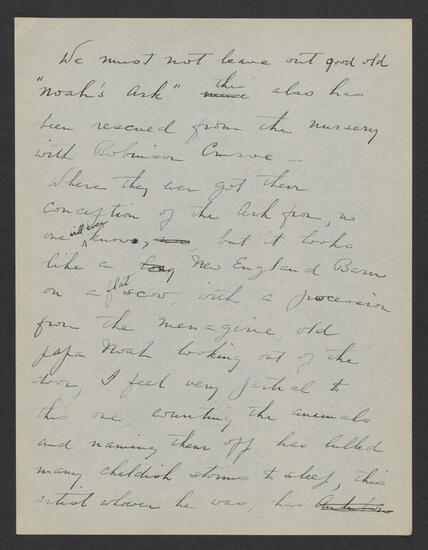 We must not leave out good old
"Noah's Ark" this also has
been rescued from the nursery
with Robinson Crusoe –
Where they ever got their
conception of the Ark from, no
one will ever know, but it looks
like a New England Barn
on a flat scow, with a procession
from the menagerie, old
papa Noah looking out of the
door, I feel very partial to
this one, counting the animals
and naming them off has lulled
many childish storms to sleep, this
artist whoever he was, has